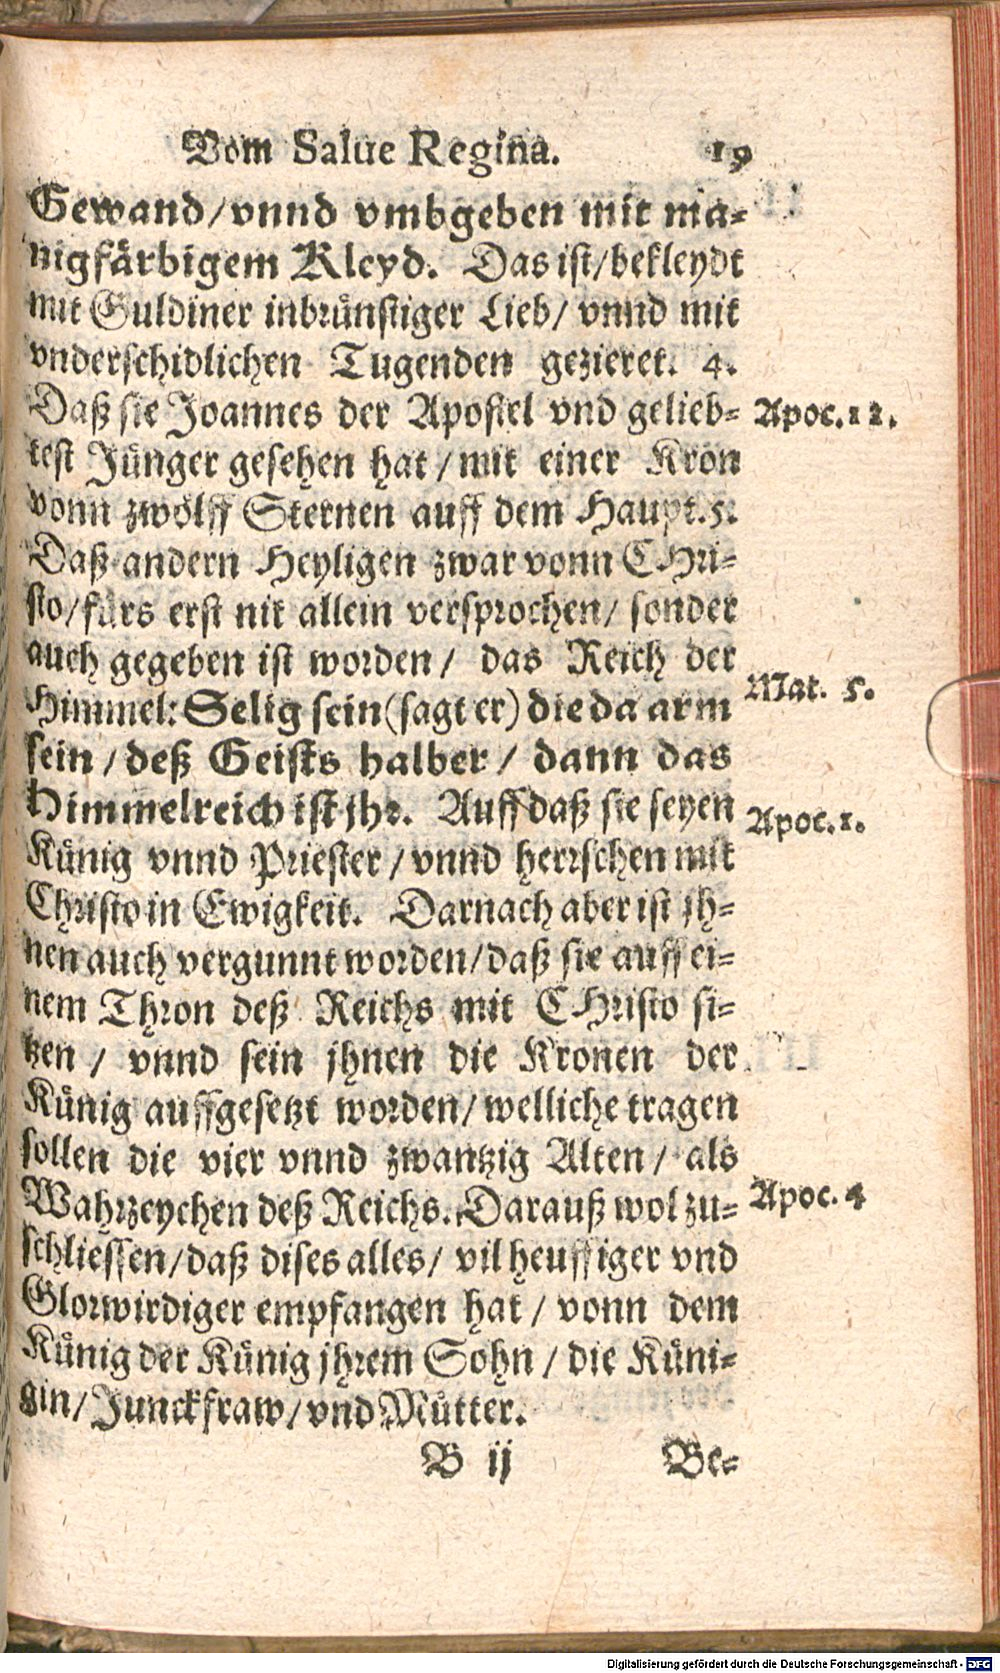 Vom Salue Regina. 19
Gewand/vnnd vmbgeben mit ma-
nigfårbigem Kleyd. Das ist/bekleydt
mit Guldiner inbrünstiger Lieb/ vnnd mit
vnderschidlichen Tugenden gezieret. 4.
Daß sie Joannes der Apostel vnd gelieb-
test Jünger gesehen hat/mit einer Kron
vonn zwölff Sternen auff dem Haupt.5.
Daß andern Heyligen zwar vonn CHri-
sto/fürs erst nit allein versprochen/ sonder
auch gegeben ist worden/ das Reich der
Himmel: Selig sein(sagt er) die da arm
sein/deß Geists halber/ dann das
Himmelreich ist jhr. Auff daß sie seyen
Künig vnnd Priester/vnnd herrschen mit
Christo in Ewigkeit. Darnach aber ist jh-
nen auch vergunnt worden/daß sie auff ei-
nem Thron deß Reichs mit CHristo si-
tzen/ vnnd sein jhnen die Kronen der
Künig auffgesetzt worden/welliche tragen
sollen die vier vnnd zwantzig Alten/ als
Wahrzeychen deß Reichs. Darauß wol zu-
schliessen/daß dises alles/ vil heuffiger vnd
Glorwirdiger empfangen hat/ vonn dem
Künig der Künig jhrem Sohn/ die Küni-
gin/Junckfraw/vnd Mutter.
B ij Be-
Apoc.12.
Mat. 5.
Apoc.1.
Apoc. 4
Digitalisierung gefördert durch die Deutsche Forschungsgemeinschaft - DFG